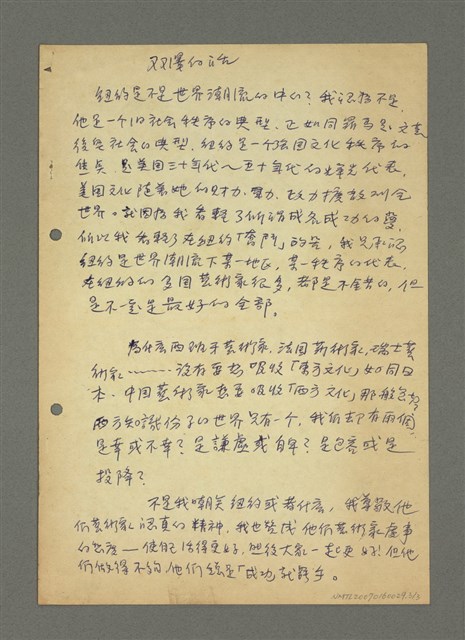 双澤的話
紐約是不是世界潮流的中心?我認為不是.
他是一个旧社会秩序的典型.正如同羅馬是文藝
後是社会的典型.紐約是一个強國文化秩序的
焦点.是美國三十年代~五十年代的光荣代表,
美國文化隨著她的財力.势力.政力擴散到全
世界.就因為我看輕了所謂成名成功的夢,
所以我看輕了在紐約「奮鬥」的等,我只承認
紐約是世界潮流下某一地區,某一秩序的代表.
在紐約的各國藝術家很多,都是不錯的,但
是不一定是最好的全部。
為什麼西班牙藝術家.法國藝術家,瑞士藝
術家………沒有要好吸收「東方文化」如同日
本.中國藝術家甚至吸收「西方文化」那般
西方知識份子的世界只有一个,我们却有兩個
是幸或不幸?是謙虛或自卑?是包容或是
投降?
不是我嘲笑紐約或者什麼,我尊敬他
们藝術家認真的精神,我也赞成他们藝術家處事
的態度—使自己活得更好,然後大家一起更好!但他
们做得不夠,他们總是「成功就歇手。
NMTL20070160029.3/3